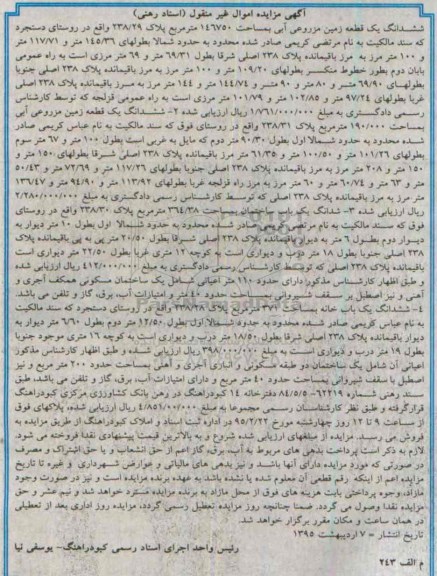 آگهی مزایده اموال غیر منقول (اسناد رهنی)
ششدانگ یک قطعه زمین مزروعی آبی بمساحت ۱۴۶۷۵۰ مترمربع پلاک ۲۳۸/۲۹ واقع در روستای دستجرد
که سند مالکیت به نام مرتضی کریمی صادر شده محدود به حدود شمالا بطولهای ۱۴۵/۳۶ متر و ۱۱۷/۷۱ متر
و ۱۰۰ متر مرز به مرز باقیمانده پلاک ۲۳۸ اصلی شرقا بطول ۶۹/۳۱ متر و ۶۹ متر مرزی است به راه عمومی
بابان دوم بطور خطوط منکسر بطولهای ۱۰۹/۲۰ متر و ۱۰۰ متر مرز به مرز باقیمانده پلاک ۲۳۸ اصلی جنوبا
بطولهای ۶۹/۹۰ متر و ۸۰ متر و ۹۰ متر و ۱۴۴/۷۴ متر و ۱۴۴ متر به مرز باقیمانده پلاک ۲۳۸ اصلی
غربا بطولهای ۹۷/۲۴ متر و ۱۰۲/۸۵ متر و ۱۰۱/۷۹ متر مرزی است به راه عمومی قزلجه که توسط کارشناس
رسمی دادگستری به مبلغ ۱/۷۶۱/۰۰۰/۰۰۰ ریال ارزیابی شده ۲- ششدانگ یک قطعه زمین مزروعی آبی
بمساحت ۱۹۰/۰۰۰ مترمربع پلاک ۲۳۸/۳۱ واقع در روستای فوق که سند مالکیت به نام عباس کریمی صادر
شده محدود به حدود شمالا اول بطول ۹۰/۳۰ متر دوم که مایل به غربی است بطول ۱۰۰ متر و ۶۷ متر سوم
بطولهای ۱۰۱/۲۶ متر و ۱۰۰/۵۰ متر و ۶۱/۳۵ متر مرز باقیمانده پلاک ۲۳۸ اصلی شرقا بطولهای ۱۵۰ متر و
۱۵۰ متر و ۲۰۸ متر مرز به مرز باقیمانده پلاک ۲۳۸ اصلی جنوبا بطولهای ۱۱۷/۲۶ متر و ۷۲/۶۹ متر و ۵۰/۴۳
متر و ۶۳ متر و ۶۰/۷۴ متر و ۶۰ متر مرز به مرز راه قزلجه غربا بطولهای ۱۱۳/۹۲ متر و ۹۴/۹۰ متر و ۱۳۶/۴۷
متر مرز به مرز باقیمانده پلاک ۲۳۸ اصلی که توسط کارشناس رسمی دادگستری به مبلغ ۲/۲۸۰/۰۰۰/۰۰۰
ریال ارزیابی شده ۳- شدانگ یک بمساحت ۳۶۴/۳۸ مترمربع پلاک ۲۳۸/۳۰ واقع در روستای
فوق که سند مالکیت به نام مرتضی صادر شده محدود به حدود شمالا اول بطول ۱۰ متر دیوار به
دیوار دوم بطول ۶ متر به دیوار باقیمانده پلاک ۲۳۸ اصلی شرقا بطول ۲۲/۵۰ متر پی به پی باقیمانده پلاک
۲۳۸ اصلی جنوبا بطول ۱۸ متر درب و دیواری است به کوچه ۱۲ متری غربا بطول ۲۲/۵۰ متر دیواری است
باقیمانده پلاک ۲۳۸ اصلی که توسط کارشناس رسمی دادگستری به مبلغ ۴۱۲/۰۰۰/۰۰۰ ریال ارزیابی شده
و طبق اظهار کارشناس مذکور دارای حدود ۱۱۰ متر اعیانی شامل یک ساختمان مسکونی همکف آجری و
آهنی و نیز اصطبل بر سقف شیروانی بمساحت حدود ۴۰ متر و امتیازات آب، برق، گاز و تلفن می باشد.
۴- ششدانگ یک باب خانه بمساحت ۳۷۱ مترمربع پلاک ۲۳۸/۲۸ واقع در روستای دستجرد که سند مالکیت
به نام عباس کریمی صادر شده محدود به حدود شمالا اول بطول ۱۲/۵۰ متر دوم بطول ۶/۶۰ متر دیوار به
دیوار باقیمانده پلاک ۲۳۸ اصلی شرقا بطول ۱۸/۵۰ متر درب و دیواری است به کوچه ۱۶ متری موجود جنوبا
بطول ۱۹ متر درب و دیواری است به مبلغ ۳۹۸/۰۰۰/۰۰۰ ریال ارزیابی شده و طبق اظهار کارشناس مذکور
اعیانی آن شامل یک ساختمان دو طبقه مسکونی و انباری آجری و آهنی بمساحت حدود ۲۰۰ متر مربع و نیز
اصطبل با سقف شیروانی بمساحت حدود ۴۰ متر مربع و دارای امتیازات آب، برق، گاز و تلفن می باشد، طبق
سند رهنی شماره ۶۲۲۱۹-۸۴/۵/۵ دفترخانه ۱۴ کبودراهنگ در رهن بانک کشاورزی مرکزی کبودراهنگ
قرار گرفته و طبق نظر کارشناسان رسمی مجموعا به مبلغ ۴/۸۵۱/۰۰۰/۰۰۰ ریال ارزیابی شده، پلاکهای فوق
از ساعت ۹ تا ۱۲ روز چهارشنبه مورخ ۹۵/۲/۲۲ در اداره ثبت اسناد و املاک کبودراهنگ از طریق مزایده به
فروش می رسد. مزایده از مبلغهای ارزیابی شده شروع و به بالاترین قیمت پیشنهادی نقدا فروخته می شود.
لازم به ذکر است پرداخت بدهی های مربوط به آب، برق، گاز اعم از حق انشعاب و یا حق اشتراک و مصرف
در صورتی که مورد مزایده دارای آنها باشد و نیز بدهی های مالیاتی و عوارض شهرداری و غیره تا تاریخ
مزایده اعم از اینکه رقم قطعی آن معلوم شده یا نشده باشد به عهده برنده مزایده است و نیز در صورت وجود
مازاد، وجوه پرداختی بابت هزینه های فوق از محل مازاد به برنده مزایده مسترد خواهد شد و نیم عشر و حق
مزایده نقدا وصول می گردد. ضمنا چنانچه روز مزایده تعطیل رسمی گردد، مزایده روز اداری بعد از تعطیلی
در همان ساعت و مکان مقرر برگزار خواهد شد.
تاریخ انتشار = ۷ اردیبهشت ۱۳۹۵
رئیس واحد اجرای اسناد رسمی کبودراهنگ- یوسفی نیا
م الف ۲۴۳